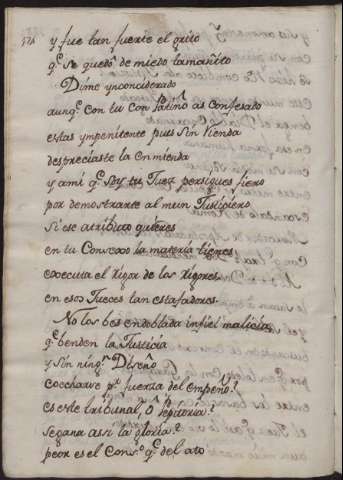 y fue tan fuerte el grito
q.e se quedò de miedo tamañito
Dime ynconciderado
aunq.e con tu con as confesado
estas ympenitente pues sin
despreciaste la enmienda
y ami q.e soy tu Juez persigues fiero
por demostrarte al mun Justiciero
Si ese atributo quieres
en tu Consexo la materia tienes
executa el rigor de los rigores
en esos Jueces tan estafadores
No los bes en doblada infiel malicia
q.e benden la Justicia
y sin ning.n Diseño
cochave p.r fuerza del empeño?
es este tribunal, ò Repitoria?
segana assi la gloria?
peor es el Cons.o q.e del ato